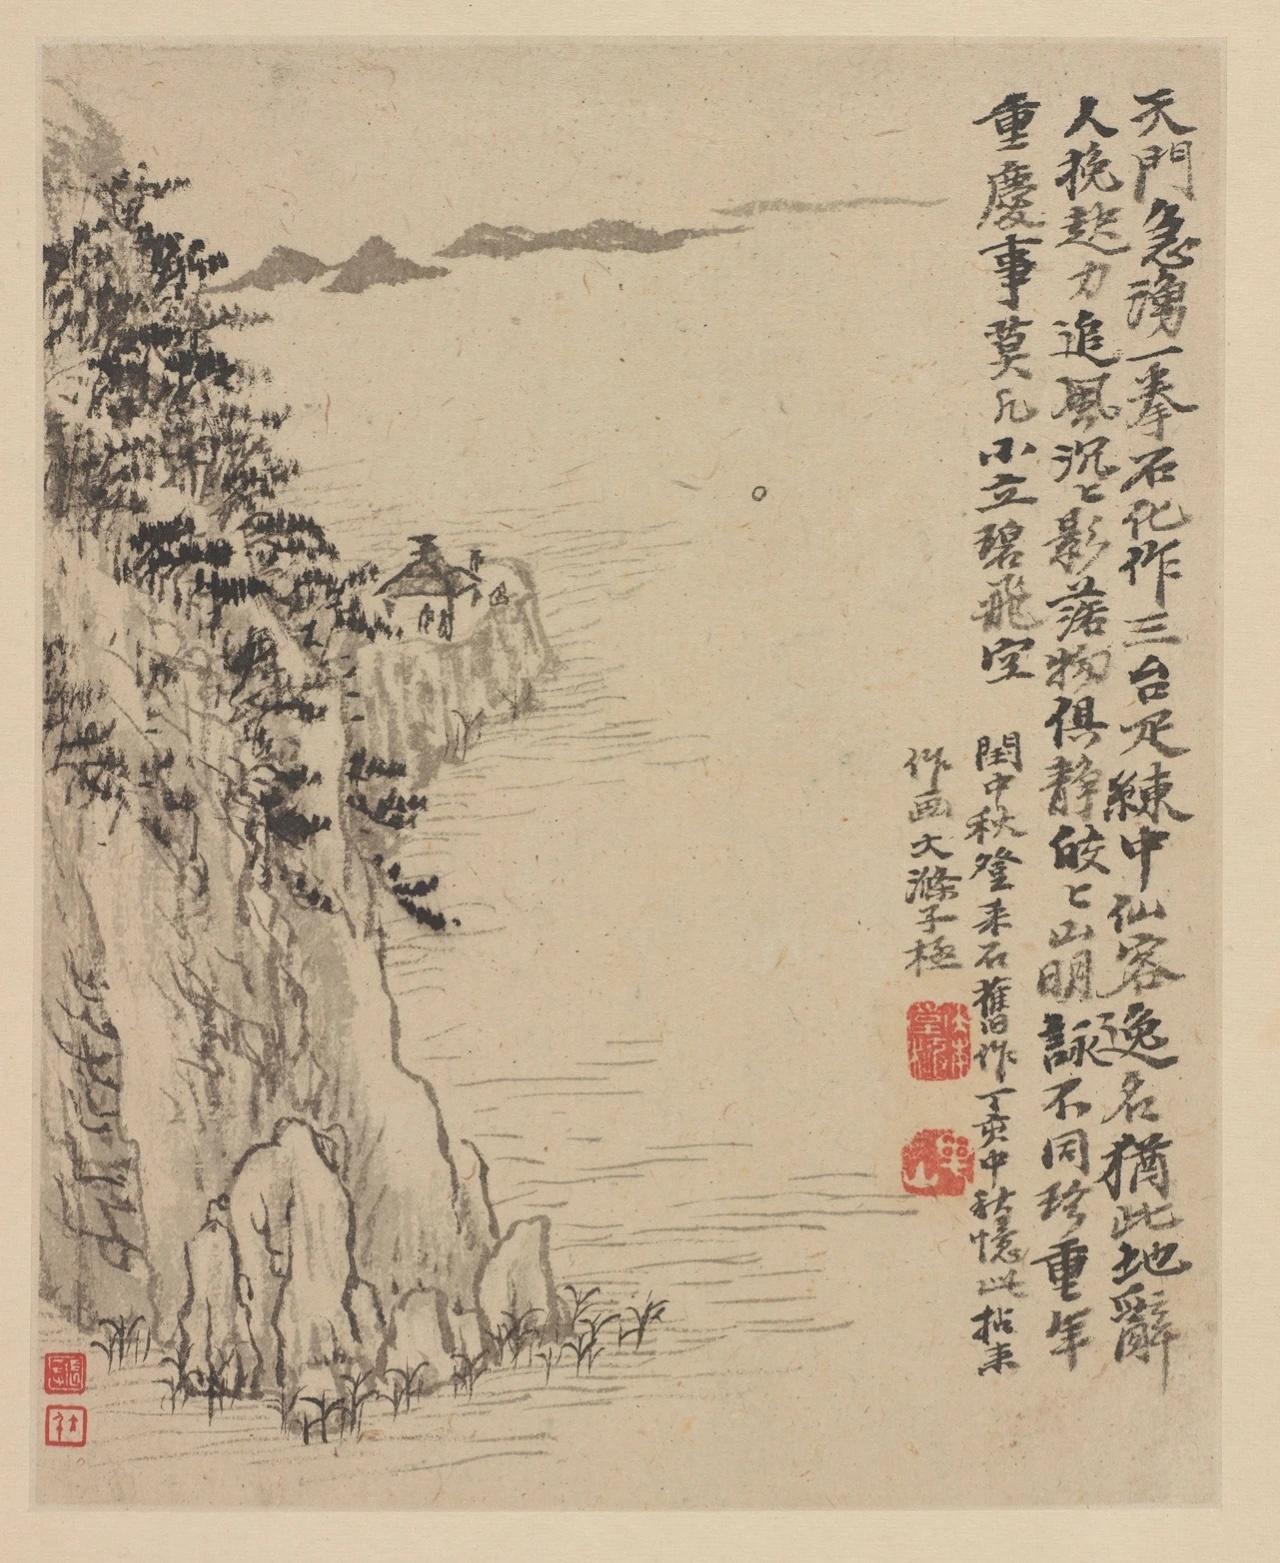 天門急湧一拳石化作三台足練中仙客逸名猶此地辭
人挽起力追風沉〻影落物俱靜皎〻山明詠不同珍重年
重慶事莫凡小立碧飛空
閏中秋登采石舊作丁亥中秋憶此拈來
作画大滌子極